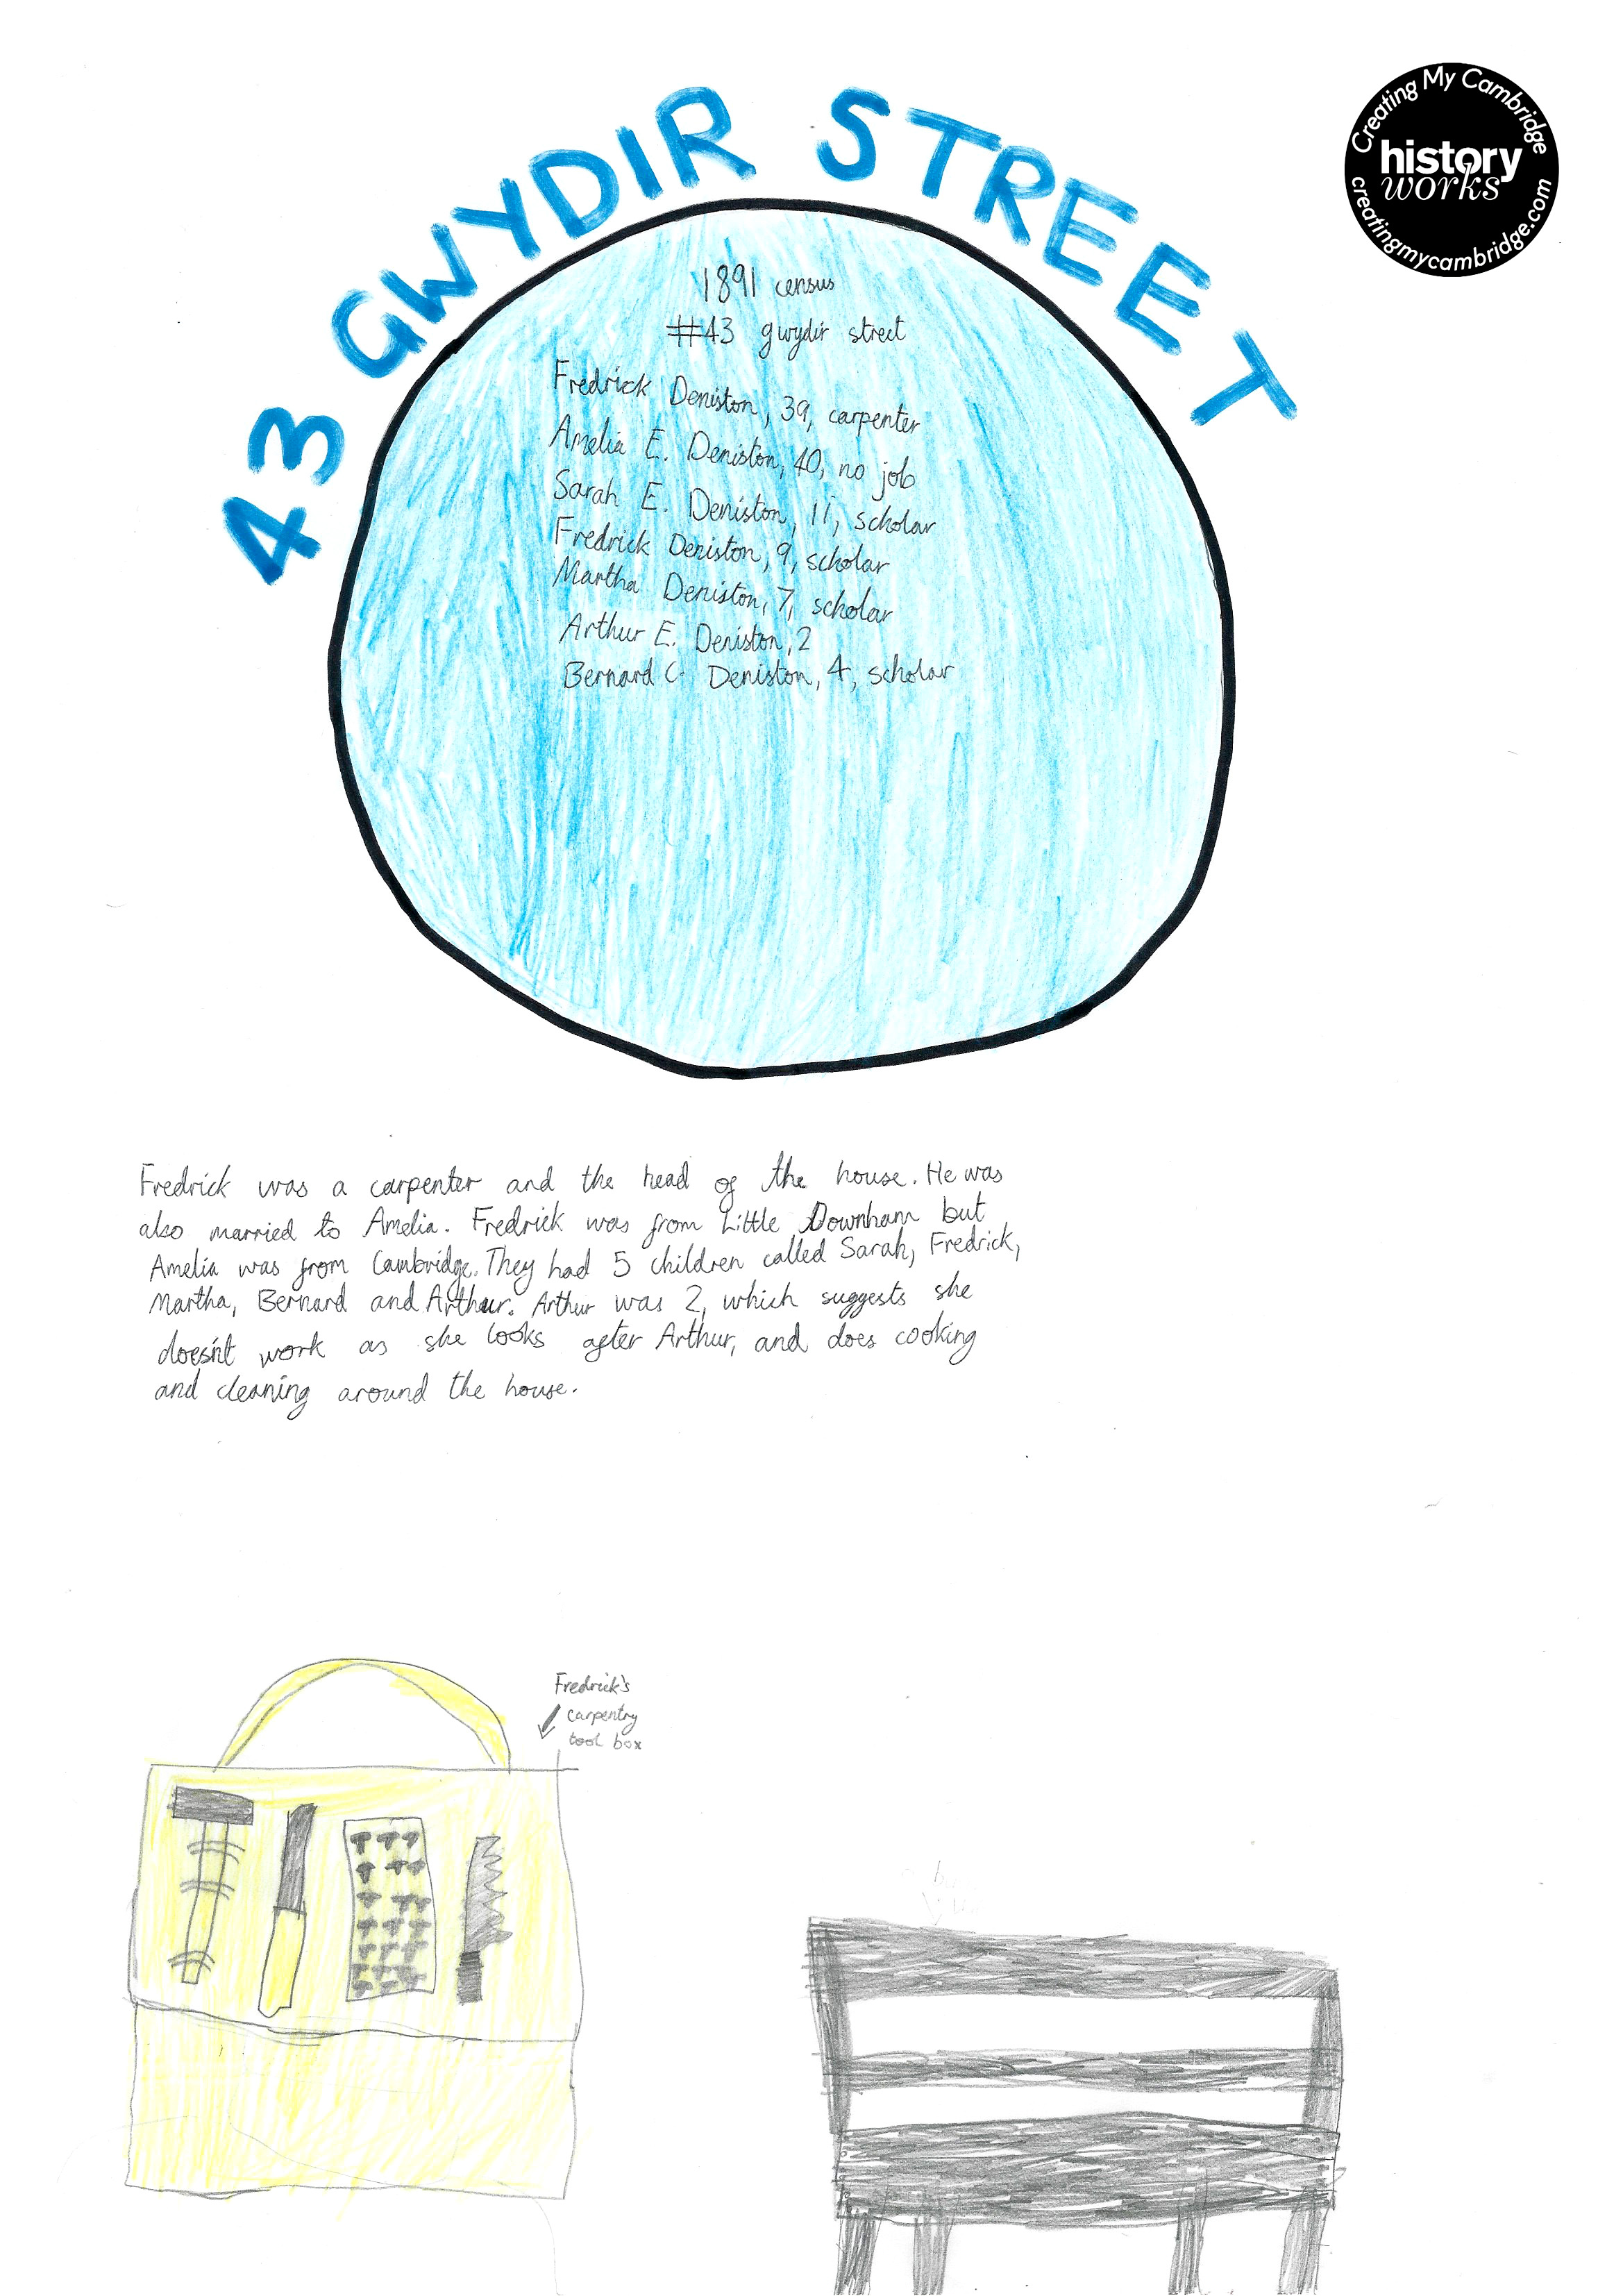 43 GWYDIR STREET
Creating My Cambridge
history
works
creatingmycambridge.com
1891 census
#43 gwydir street
Fredrick Deniston, 39, carpenter
Amelia E. Deniston, 40, no job
Sarah E. Deniston, 11, scholar
Fredrick Deniston, 9, scholar
Martha Deniston, 7, scholar
Arthur E. Deniston, 2
Bernard C. Deniston, 4, scholar
Fredrick was a carpenter and the head of the house. He was
also married to Amelia. Fredrick was from Little Downham but
Amelia was from Cambridge. They had 5 children called Sarah, Fredrick,
Martha, Bernard and Arthur. Arthur was 2, which suggests she
doesn't work as she looks after Arthur, and does cooking
and cleaning around the house.
Fredrick's
carpentry
tool box